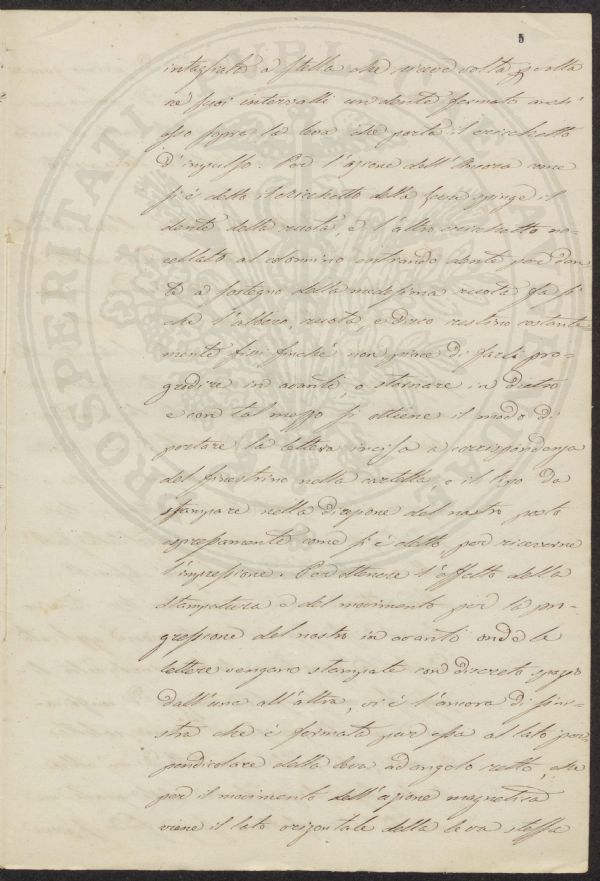 5
intagliata a stella che riceve volta per volta
ne' suoi intervalli un dente fermato anch'
esso sopra la leva che porta il cricchetto
d'impulso. Per l'azione dell'Ancora come
si è detto il cricchetto della leva spinge il
dente della ruota, e l'altro cricchetto no-
cellato al colonnino entrando dente per den
te a sostegno della medesima ruota fa sì
che l'albero, ruota, e disco restino costante-
mente fissi finchè non piace di farli pro-
gredire in avanti, o stornare in dietro
e con tal mezzo si ottiene il modo di
portare la lettera incisa a corrispondenza
del finestrino nella cartella, e il tipo da
stampare nella direzione del nastro posto
espressamente come si è detto, per riceverne
l'impressione. Per ottenere l'effetto della
stampatura e del movimento per la pro-
gressione del nastro in avanti onde le
lettere vengano stampate con discreto spazio
dall'una all'altra, vi è l'ancora di sini-
stra che è fermata pur essa al lato per-
pendicolare della leva ad angolo retto, che
per il movimento dell'azione magnetica
viene il lato orizontale della leva stessa
PROSPERITATI